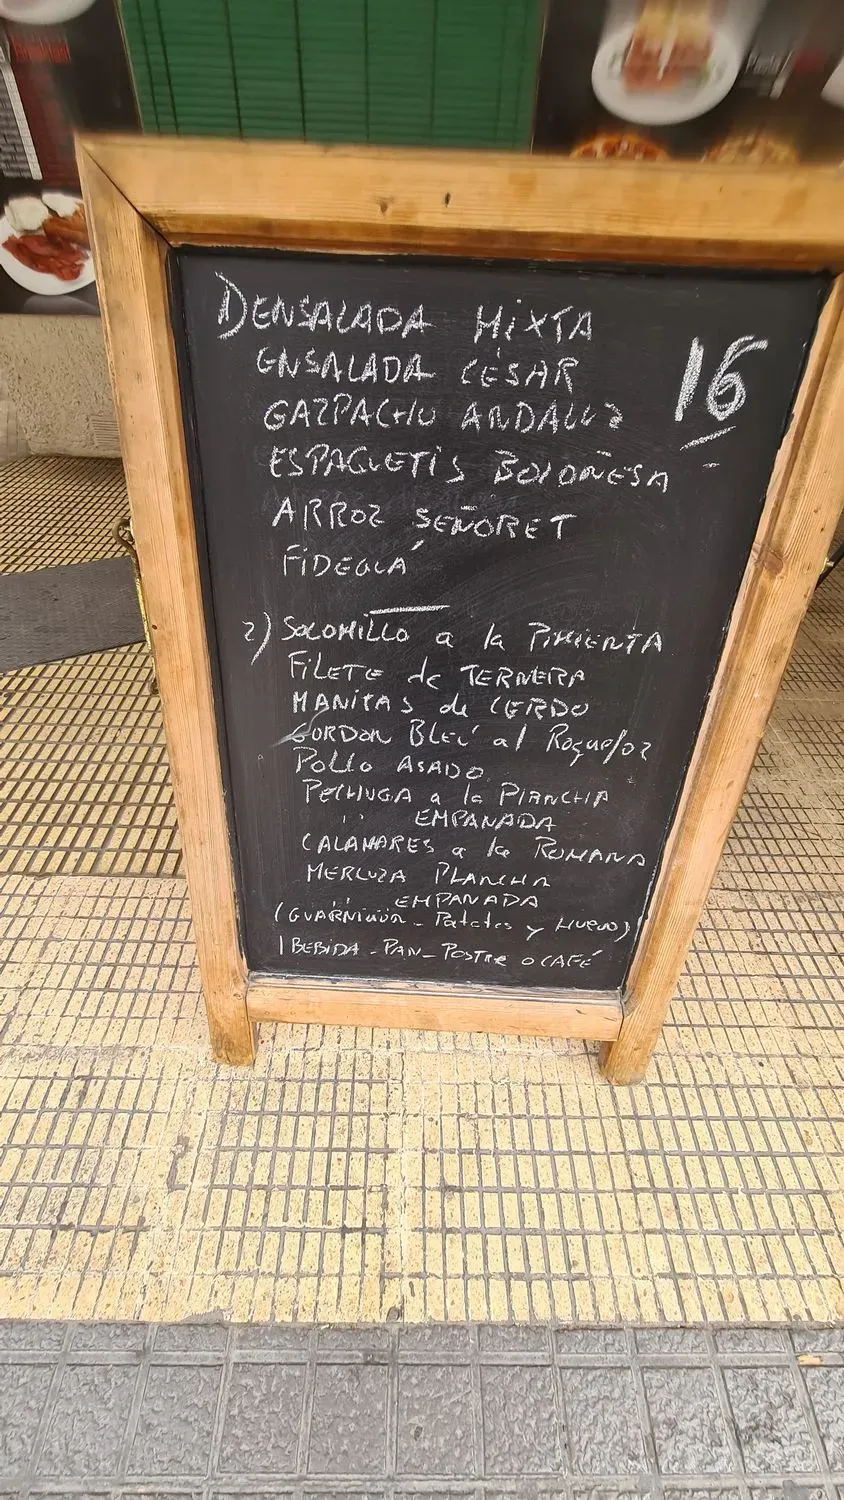 1) ENSALADA MIXTA
ENSALADA CÉSAR
GAZPACHO ANDALUZ
16
ESPAGUETIS BOLOÑESA
ARROZ SEÑORET
FIDEUÁ
2) SOLOMILLO a la PIMIENTA
FILETE de TERNERA
MANITAS de CERDO
GORDON BLEÚ al Roquefor
POLLO ASADO
PECHUGA a la PLANCHA
" EMPANADA
CALAMARES a la ROMANA
MERLUZA PLANCHA
" EMPANADA
(GUARNICIÓN - Patatas y HUEVO)
1 BEBIDA - PAN - POSTRE O CAFÉ
Breakfast
Pasta